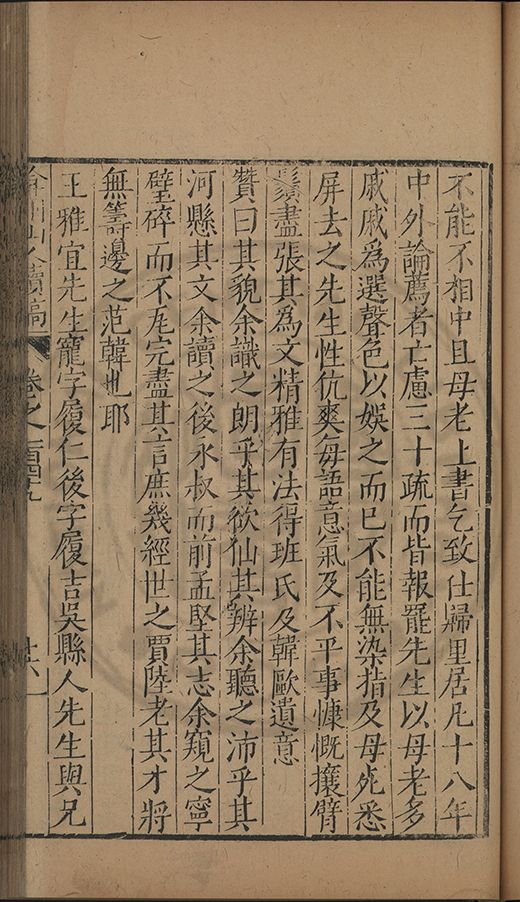 不能不相中且母老上書乞致仕歸里居凡十八年
中外論薦者亡慮三十疏而皆報罷先生以母老多
戚戚爲選聲色以娛之而已不能無染指及母歿悉
屏去之先生性伉爽每語意氣及不平事慷慨攘臂
鬚盡張其爲文精雅有法得班氏及韓歐遺意
贊曰其貌余識之朗乎其欲仙其辨余聽之沛乎其
河懸其文余讀之後永叔而前孟堅其志余窺之寧
璧碎而不瓦完盡其言庶幾經世之賈陸老其才將
無籌邊之范韓也耶
王雅宜先生寵字履仁後字履吉吳縣人先生與兄
弇州山人續稿 卷之一百四十九 廿六